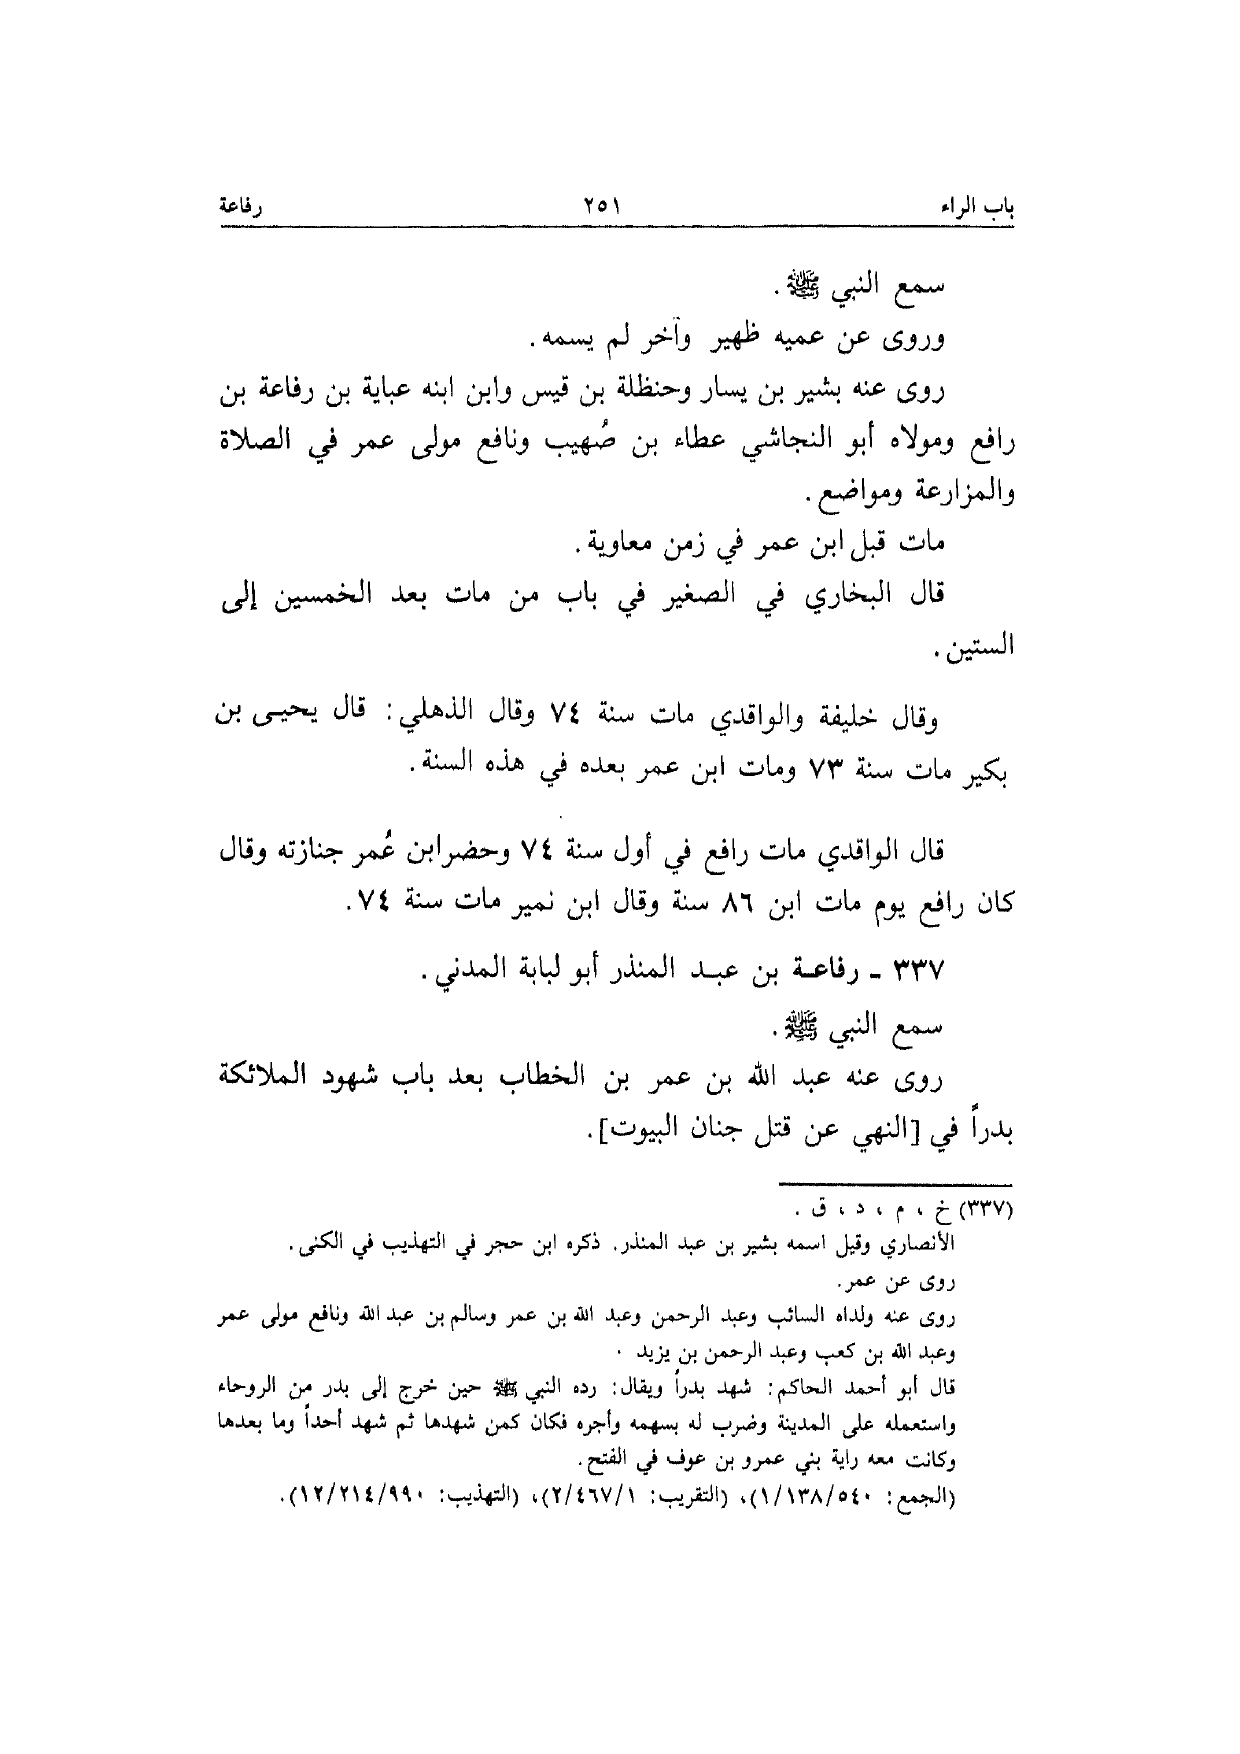 باب الراء ٢٥١ رفاعة
سمع النبي ﷺ.
وروى عن عميه ظهير وآخر لم يسمه.
روى عنه بشير بن يسار وحنظلة بن قيس وابن ابنه عباية بن رفاعة بن
رافع ومولاه أبو النجاشي عطاء بن صُهيب ونافع مولى عمر في الصلاة
والمزارعة ومواضع.
مات قبل ابن عمر في زمن معاوية.
قال البخاري في الصغير في باب من مات بعد الخمسين إلى
الستين.
وقال خليفة والواقدي مات سنة ٧٤ وقال الذهلي: قال يحيى بن
بكير مات سنة ٧٣ ومات ابن عمر بعده في هذه السنة.
قال الواقدي مات رافع في أول سنة ٧٤ وحضر ابن عُمر جنازته وقال
كان رافع يوم مات ابن ٨٦ سنة وقال ابن نمير مات سنة ٧٤.
٣٣٧ ـ رفاعة بن عبد المنذر أبو لبابة المدني.
سمع النبي ﷺ.
روى عنه عبد الله بن عمر بن الخطاب بعد باب شهود الملائكة
بدراً في [النهي عن قتل جنان البيوت].
(٣٣٧) خ ، م ، د ، ق .
الأنصاري وقيل اسمه بشير بن عبد المنذر. ذكره ابن حجر في التهذيب في الكنى.
روى عن عمر.
روى عنه ولداه السائب وعبد الرحمن وعبد الله بن عمر وسالم بن عبد الله ونافع مولى عمر
وعبد الله بن كعب وعبد الرحمن بن يزيد .
قال أبو أحمد الحاكم: شهد بدراً ويقال: رده النبي ﷺ حين خرج إلى بدر من الروحاء
واستعمله على المدينة وضرب له بسهمه وأجره فكان كمن شهدها ثم شهد أحداً وما بعدها
وكانت معه راية بني عمرو بن عوف في الفتح.
(الجمع: ١/١٣٨/٥٤٠)، (التقريب: ٢/٤٦٧/١)، (التهذيب: ١٢/٢١٤/٩٩٠).